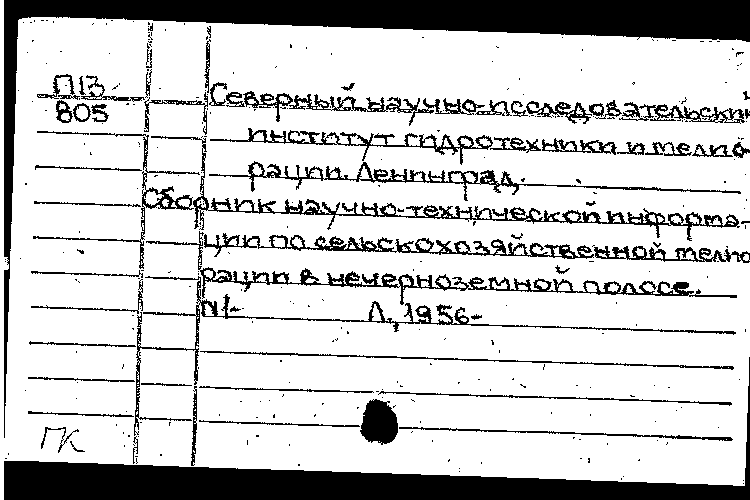 П13
805
Северный научно-исследовательский
институт гидротехники и мелио-
рации. Ленинград.
Сборник научно-технической информа-
ции по сельскохозяйственной мелио
рации в нечерноземной полосе.
N1- Л., 1956-
ГК